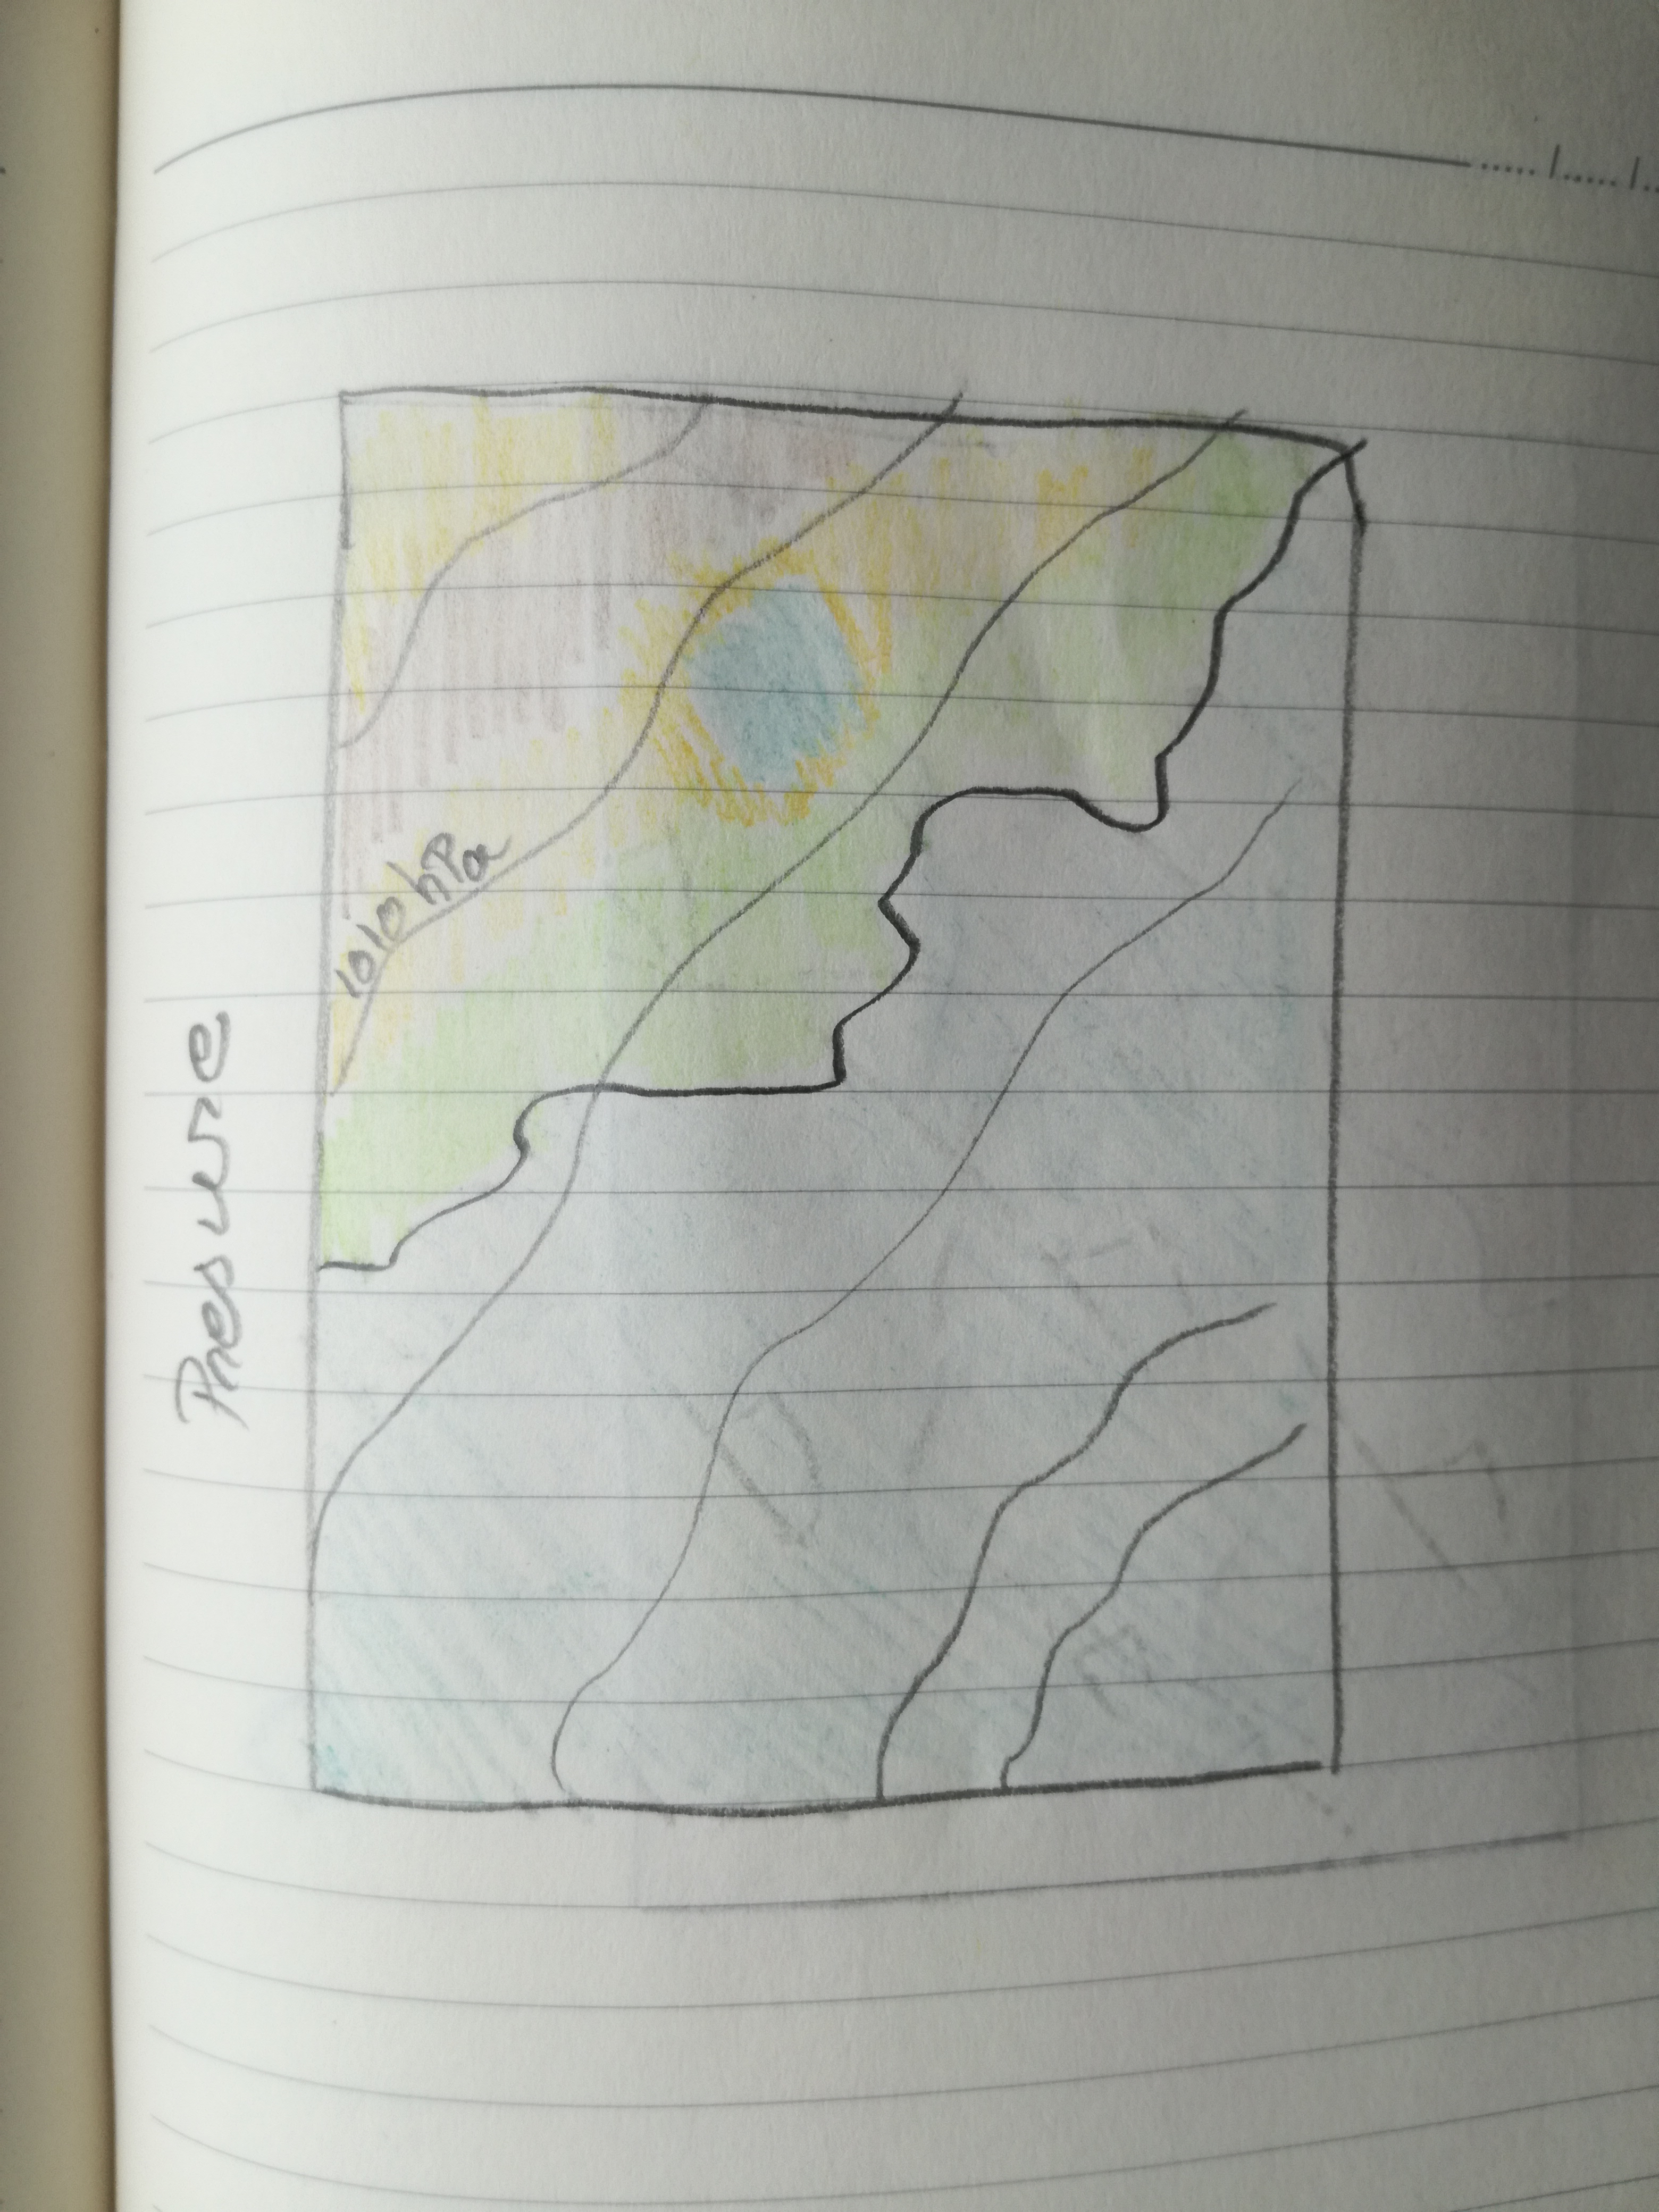 Pressure
1010 hPa